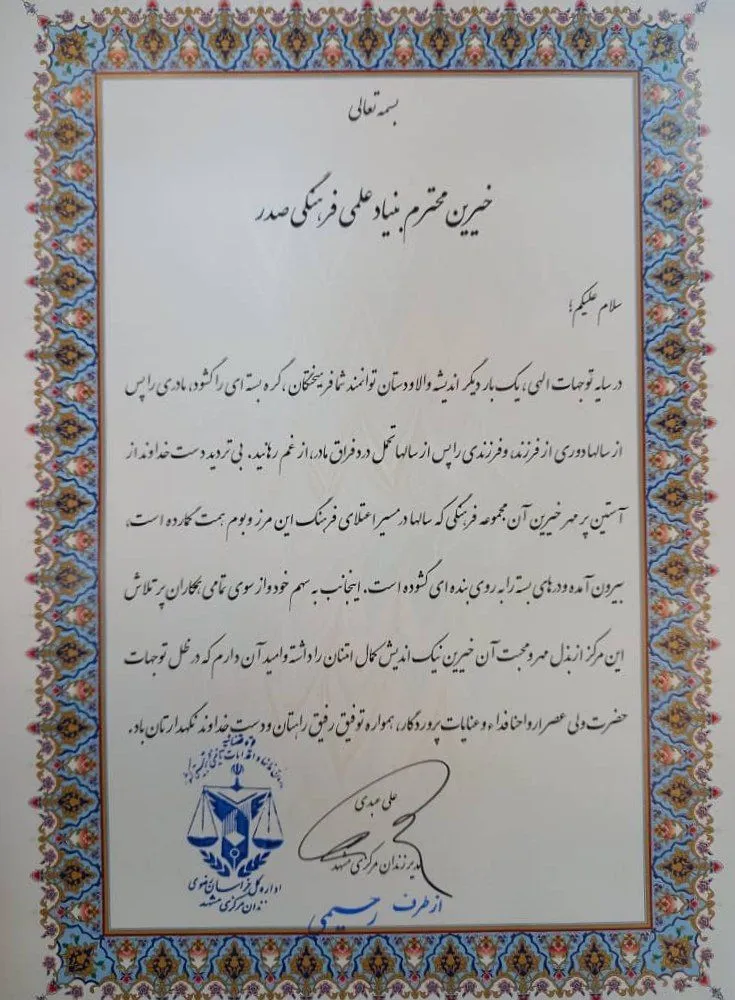 بسمه تعالی
خیرین محترم بنیاد علمی فرهنگی صدر
سلام علیکم؛
در سایه توجهات الهی، یک بار دیگر اندیشه والا و دستان توانمند شما فرهیختگان، گره بسته ای را گشود، مادری را پس
از سالها دوری از فرزند، و فرزندی را پس از سالها تحمل درد فراق مادر، از غم رهانید. بی تردید دست خداوند از
آستین پر مهر خیرین آن مجموعه فرهنگی که سالها در مسیر اعتلای فرهنگ این مرز و بوم همت گمارده است،
بیرون آمده و درهای بسته را به روی بنده ای گشوده است. اینجانب به سهم خود و از سوی تمامی همکاران پر تلاش
این مرکز از بذل مهر و محبت آن خیرین نیک اندیش کمال امتنان را داشته و امید آن دارم که در ظل توجهات
حضرت ولی عصر ارواحنا فداء و عنایات پروردگار، همواره توفیق رفیق راهتان و دست خداوند نگهدارتان باد.
علی عبدی
مدیر زندان مرکزی مشهد
از طرف رحیمی
قوه قضائیه
اداره کل خراسان رضوی
زندان مرکزی مشهد